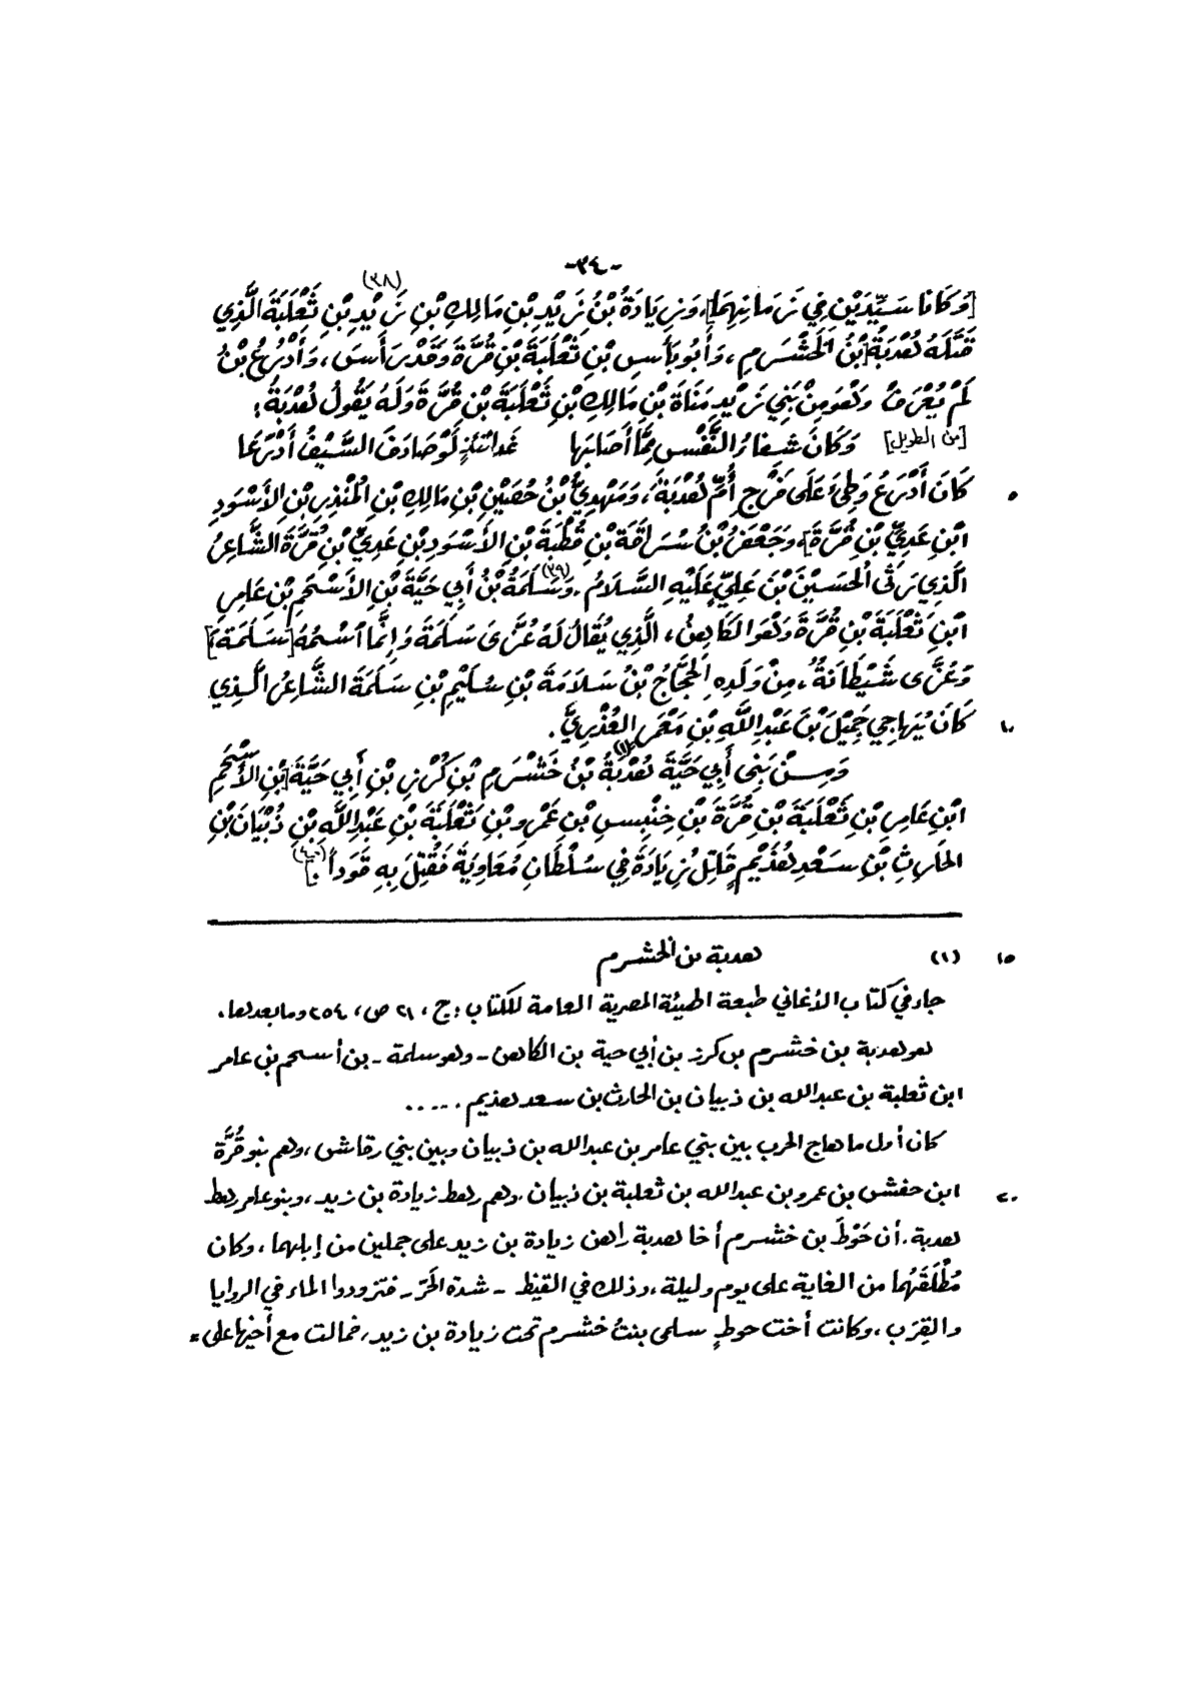 -٣٤-
[وَكَانَا سَيِّدَيْنِ فِي زَمَانِهِمَا]، وَزِيَادَةُ بْنُ زَيْدِ بْنِ مَالِكِ بْنِ (٣٨) زَيْدِ بْنِ ثَعْلَبَةَ الَّذِي
قَتَلَهُ هُدْبَةُ [بْنُ الْخَشْرَمِ، وَأَبُو بَأْسِ بْنِ ثَعْلَبَةَ بْنِ قُرَّةَ وَقَدْ رَأَسَ، وَأَدْرُعُ بْنُ
لَمْ يُعْرَفْ وَهُوَ مِنْ بَنِي زَيْدِ مَنَاةَ بْنِ مَالِكِ بْنِ ثَعْلَبَةَ بْنِ قُرَّةَ وَلَهُ يَقُولُ هُدْبَةُ:
[من الطويل] وَكَانَ شِفَاءُ النَّفْسِ مِمَّا أَصَابَهَا غَدَاتَئِذٍ لَوْ صَادَفَ السَّيْفُ أَدْرَعَا
٥ كَانَ أَدْرَعُ وَطِئَ عَلَى فَرْجِ أُمِّ هُدْبَةَ، وَمَهْدِيُّ بْنُ حُصَيْنِ بْنِ مَالِكِ بْنِ الْمُنْذِرِ بْنِ الأَسْوَدِ
ابْنِ عَدِيِّ بْنِ قُرَّةَ]، وَجَعْفَرُ بْنُ سُرَاقَةَ بْنِ قُطْبَةَ بْنِ الأَسْوَدِ بْنِ عَدِيِّ بْنِ قُرَّةَ الشَّاعِرُ
الَّذِي رَثَى الْحُسَيْنَ بْنَ عَلِيٍّ عَلَيْهِ السَّلَامُ. (٣٩) وَسَلَمَةُ بْنُ أَبِي حَيَّةَ بْنِ الأَسْحَمِ بْنِ عَامِرِ
ابْنِ ثَعْلَبَةَ بْنِ قُرَّةَ وَهُوَ الكَاهِنُ، الَّذِي يُقَالُ لَهُ عُزَّى سَلَمَةَ وَإِنَّمَا اسْمُهُ [سَلَمَةَ]
وَعُزَّى شَيْطَانَةُ، مِنْ وَلَدِهِ الْحَجَّاجُ بْنُ سَلَامَةَ بْنِ سُلَيْمِ بْنِ سَلَمَةَ الشَّاعِرُ الَّذِي
١٠ كَانَ يُهَاجِي جَمِيْلَ بْنَ عَبْدِ اللَّهِ بْنِ مَعْمَرٍ العُذْرِيَّ.
وَمِنْ بَنِي أَبِي حَيَّةَ هُدْبَةُ (١) بْنُ خَشْرَمِ بْنِ كُرْزِ بْنِ أَبِي حَيَّةَ [بْنِ الأَسْحَمِ
ابْنِ عَامِرِ بْنِ ثَعْلَبَةَ بْنِ قُرَّةَ بْنِ خِنْبِسِ بْنِ عَمْرِو بْنِ ثَعْلَبَةَ بْنِ عَبْدِ اللَّهِ بْنِ ذُبْيَانَ بْنِ
الحَارِثِ بْنِ سَعْدِ هُذَيْمٍ قَاتِلُ زِيَادَةَ فِي سُلْطَانِ مُعَاوِيَةَ فَقُتِلَ بِهِ قَوَداً]. (٤٠)
١٥ (١) هدبة بن الخشرم
جاء في كتاب الأغاني طبعة الهيئة المصرية العامة للكتاب: ج، ٢١ ص، ٢٥٤ وما بعدها.
هو هدبة بن خشرم بن كرز بن أبي حية بن الكاهن - وهو سلمة - بن أسحم بن عامر
ابن ثعلبة بن عبد الله بن ذبيان بن الحارث بن سعد هذيم .....
كان أول ما هاج الحرب بين بني عامر بن عبد الله بن ذبيان وبين بني رقاش، وهم بنو قُرَّة
٢٠ ابن حفش بن عمرو بن عبد الله بن ثعلبة بن ذبيان. وهم رهط زيادة بن زيد، وبنو عامر رهط
هدبة. أن حَوْطَ بن خشرم أخا هدبة راهن زيادة بن زيد على جملين من إبلهما، وكان
مُطْلَقَهُما من الغاية على يوم وليلة، وذلك في القيظ - شدة الحَرّ - فتزودوا الماء في الروايا
والقِرَب، وكانت أخت حوطٍ سلمى بنتُ خشرم تحت زيادة بن زيد، فمالت مع أخيها على =